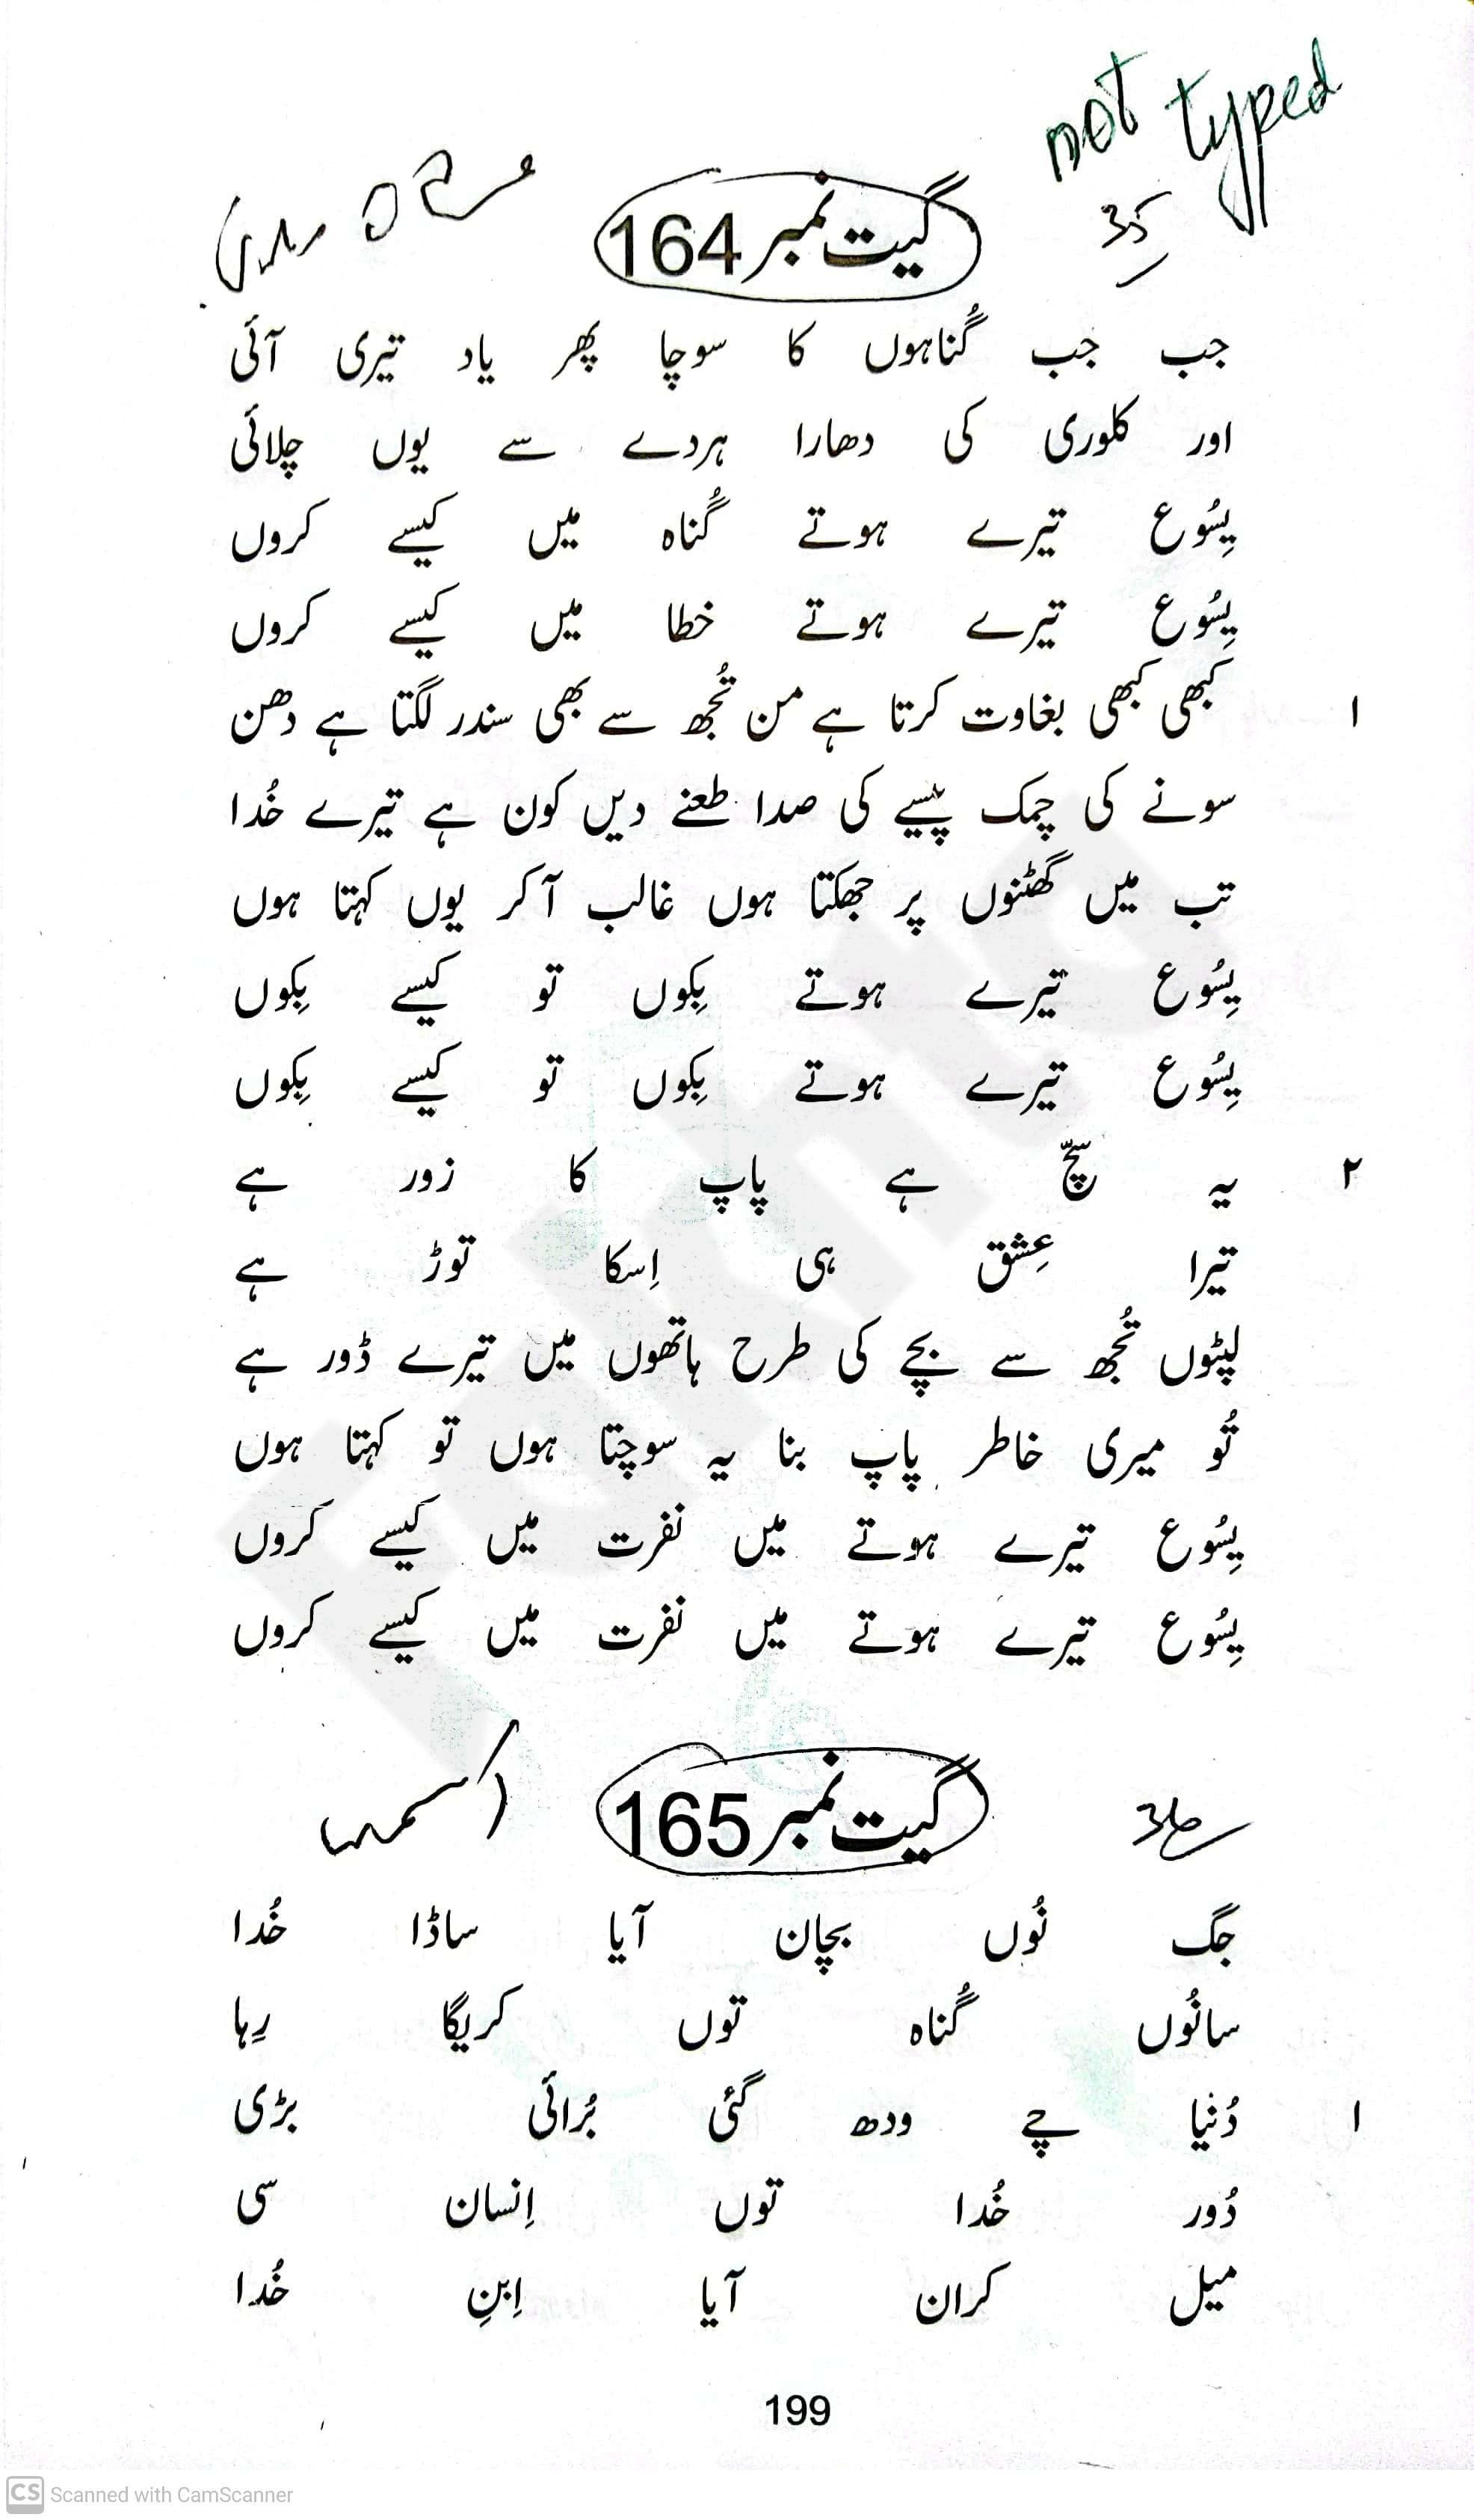 not typed
گیت نمبر 164
35
جب جب گُناہوں کا سوچا پھر یاد تیری آئی
اور کلوری کی دھارا ہردے سے یوں چلائی
یِسُوع تیرے ہوتے گُناہ میں کیسے کروں
یِسُوع تیرے ہوتے خطا میں کیسے کروں
۱ کبھی کبھی بغاوت کرتا ہے من تُجھ سے بھی سندر لگتا ہے دھن
سونے کی چمک پیسے کی صدا طعنے دیں کون ہے تیرے خُدا
تب میں گھٹنوں پر جھکتا ہوں غالب آ کر یوں کہتا ہوں
یِسُوع تیرے ہوتے بِکوں تو کیسے بِکوں
یِسُوع تیرے ہوتے بِکوں تو کیسے بِکوں
۲ یہ سچّ ہے پاپ کا زور ہے
تیرا عِشق ہی اِسکا توڑ ہے
لپٹوں تُجھ سے بچے کی طرح ہاتھوں میں تیرے ڈور ہے
تُو میری خاطر پاپ بنا یہ سوچتا ہوں تو کہتا ہوں
یِسُوع تیرے ہوتے میں نفرت میں کیسے کروں
یِسُوع تیرے ہوتے میں نفرت میں کیسے کروں
گیت نمبر 165
36
جگ نُوں بچان آیا ساڈا خُدا
سانُوں گُناہ توں کریگا رِہا
۱ دُنیا چے ودھ گئی بُرائی بڑی
دُور خُدا توں اِنسان سی
میل کران آیا اِبنِ خُدا
199
CS Scanned with CamScanner